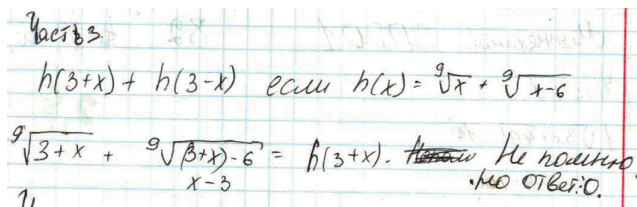 Часть 3.
h(3+x) + h(3-x) если h(x) = ⁹√x + ⁹√x-6
⁹√3+x + ⁹√(3+x)-6 = h(3+x). Не помню.
x-3 но ответ: 0.